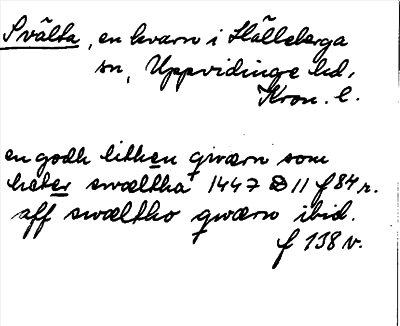 Svälta, en kvarn i Hälleberga
sn, Uppvidinge hd,
Kron. l.
en godh lithen qwærn som
heter swæltha 1447 D 11 f 84 r.
aff swæltho qwærn ibid.
f 138 v.